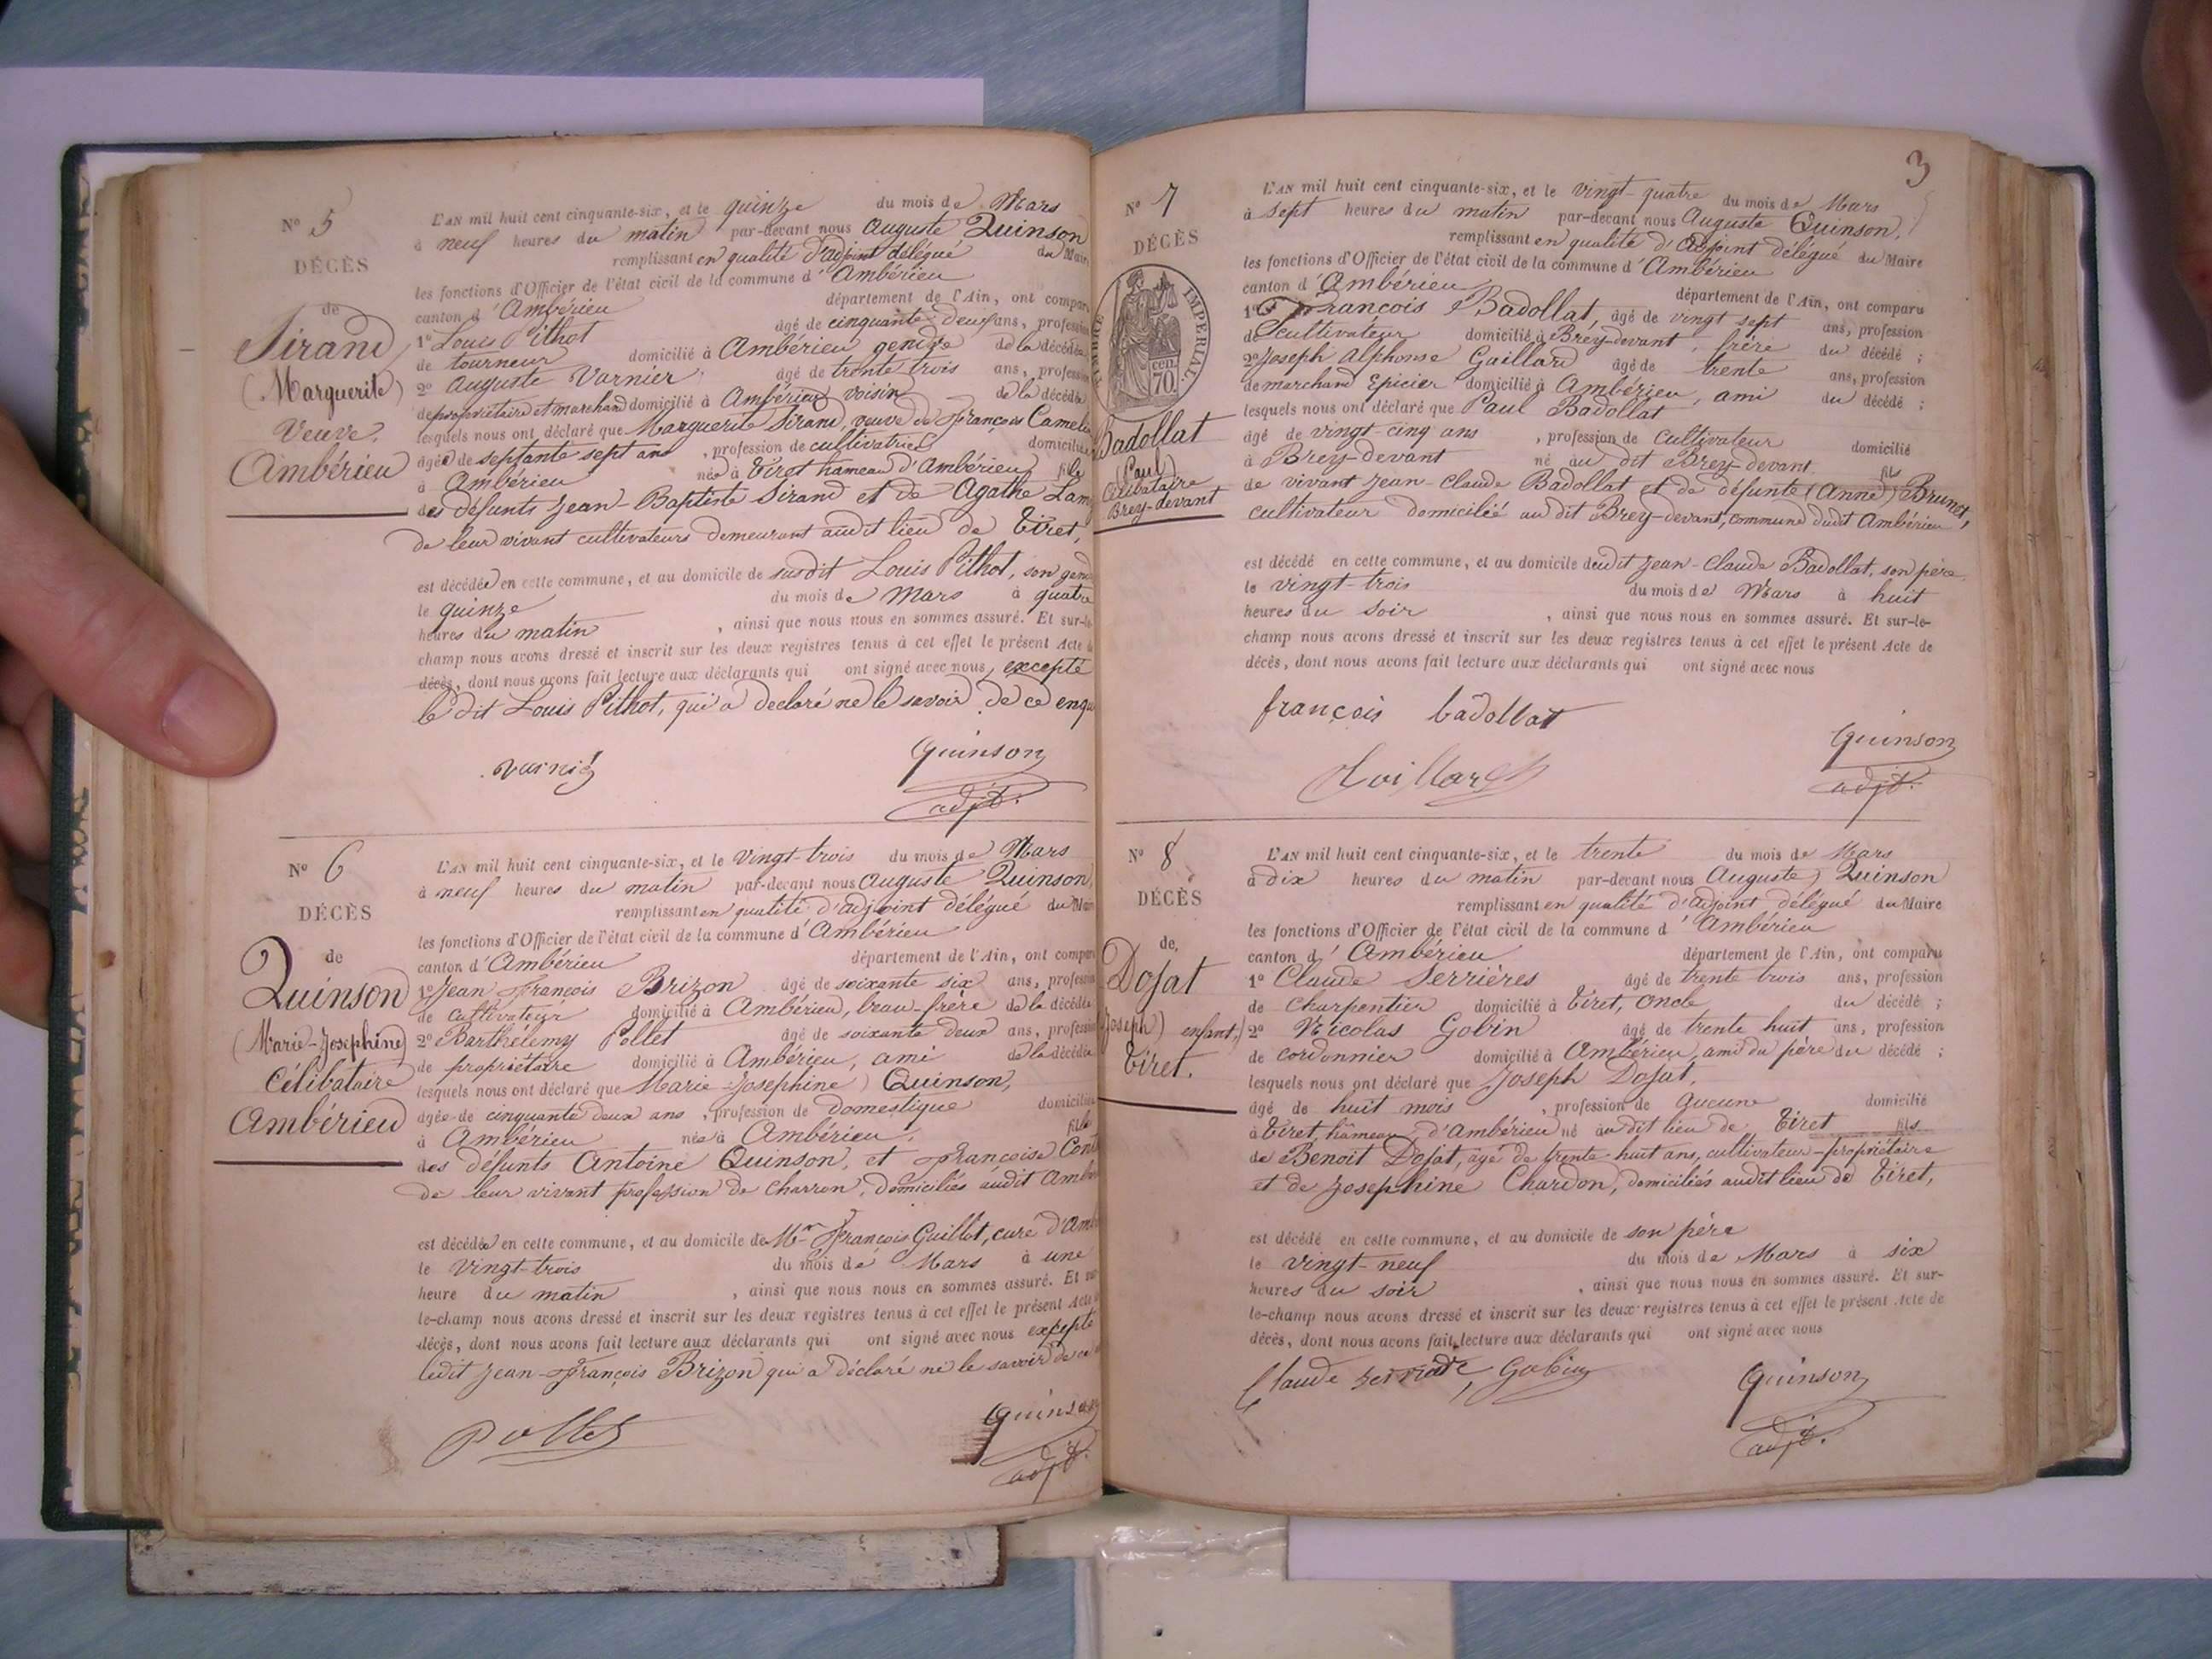 N° 5
DÉCÈS
de
Sirand
(Marguerite)
Veuve,
Ambérieu
L'AN mil huit cent cinquante-six, et le quinze du mois de Mars
à neuf heures du matin par-devant nous Auguste Quinson
remplissant en qualité d'adjoint délégué du Maire
les fonctions d'Officier de l'état civil de la commune d'Ambérieu
canton d'Ambérieu département de l'Ain, ont comparu
1° Louis Pithot âgé de cinquante deux ans, profession
de tourneur domicilié à Ambérieu gendre de la décédée
2° Auguste Varnier âgé de trente trois ans, profession
de propriétaire et marchand domicilié à Ambérieu voisin de la décédée
lesquels nous ont déclaré que Marguerite Sirand, veuve de François
âgée de septante sept ans, profession de cultivatrice domiciliée
à Ambérieu née à Tiret hameau d'Ambérieu fille
des défunts Jean-Baptiste Sirand et de Agathe
de leur vivant cultivateurs demeurant audit lieu de Tiret,
est décédée en cette commune, et au domicile de susdit Louis Pithot, son
le quinze du mois de Mars à quatre
heures du matin, ainsi que nous nous en sommes assuré. Et sur-le-
champ nous avons dressé et inscrit sur les deux registres tenus à cet effet le présent Acte de
décès, dont nous avons fait lecture aux déclarants qui ont signé avec nous, excepté
le dit Louis Pithot, qui a declaré ne le savoir de ce
Quinson
adjt.
N° 6
DÉCÈS
de
Quinson
(Marie-Josephine)
Célibataire
Ambérieu
L'AN mil huit cent cinquante-six, et le vingt-trois du mois de Mars
à neuf heures du matin par-devant nous Auguste Quinson
remplissant en qualité d'adjoint délégué du Maire
les fonctions d'Officier de l'état civil de la commune d'Ambérieu
canton d'Ambérieu département de l'Ain, ont comparu
1° Jean François Brizon âgé de soixante six ans, profession
de cultivateur domicilié à Ambérieu, beau-frère de la décédée
2° Barthélemy Pollet âgé de soixante deux ans, profession
de propriétaire domicilié à Ambérieu, ami de la décédée
lesquels nous ont déclaré que Marie-Josephine Quinson,
âgée de cinquante deux ans, profession de domestique domiciliée
à Ambérieu née à Ambérieu, fille
des défunts Antoine Quinson, et Françoise
de leur vivant profession de charron, domiciliés audit
est décédée en cette commune, et au domicile de Mr François Guillot, curé
le vingt-trois du mois de Mars à une
heure du matin, ainsi que nous nous en sommes assuré. Et sur
le-champ nous avons dressé et inscrit sur les deux registres tenus à cet effet le présent Acte
décès, dont nous avons fait lecture aux déclarants qui ont signé avec nous excepté
ledit Jean-François Brizon qui a déclaré ne le savoir de ce
Pollet
Quinson
adjt.
3
N° 7
DÉCÈS
TIMBRE IMPERIAL.
70.
Badollat
(Paul)
Célibataire
Brey-devant
L'AN mil huit cent cinquante-six, et le vingt-quatre du mois de Mars
à sept heures du matin par-devant nous Auguste Quinson,
remplissant en qualité d'Adjoint délégué du Maire
les fonctions d'Officier de l'état civil de la commune d'Ambérieu
canton d'Ambérieu département de l'Ain, ont comparu
1° François Badollat, âgé de vingt sept ans, profession
de cultivateur domicilié à Brey-devant, frère du décédé ;
2° Joseph Alphonse Gaillard âgé de trente ans, profession
de marchand Epicier domicilié à Ambérieu, ami du décédé ;
lesquels nous ont déclaré que Paul Badollat
âgé de vingt-cinq ans, profession de cultivateur domicilié
à Brey-devant né au dit Brey-devant fils
de vivant Jean-Claude Badollat et de défunte (Anne) Brunet,
cultivateur domicilié au dit Brey-devant, commune dudit Ambérieu
est décédé en cette commune, et au domicile dudit Jean-Claude Badollat, son père
le vingt-trois du mois de Mars à huit
heures du soir, ainsi que nous nous en sommes assuré. Et sur-le-
champ nous avons dressé et inscrit sur les deux registres tenus à cet effet le présent Acte de
décès, dont nous avons fait lecture aux déclarants qui ont signé avec nous
françois badollat
Quinson
adjt.
N° 8
DÉCÈS
de,
Dojat
(Joseph) enfant,
Tiret.
L'AN mil huit cent cinquante-six, et le trente du mois de Mars
à dix heures du matin par-devant nous Auguste Quinson
remplissant en qualité d'Adjoint délégué du Maire
les fonctions d'Officier de l'état civil de la commune d'Ambérieu
canton d'Ambérieu département de l'Ain, ont comparu
1° Claude Serrières âgé de trente trois ans, profession
de Charpentier domicilié à Tiret, Oncle du décédé ;
2° Nicolas Gobin âgé de trente huit ans, profession
de cordonnier domicilié à Ambérieu, ami du père du décédé ;
lesquels nous ont déclaré que Joseph Dojat,
âgé de huit mois, profession de aucune domicilié
à Tiret, hâmeau d'Ambérieu né au dit lieu de Tiret fils
de Benoit Dojat, âgé de trente-huit ans, cultivateur-propriétaire
et de Josephine Chardon, domiciliés audit lieu de Tiret,
est décédé en cette commune, et au domicile de son père
le vingt-neuf du mois de Mars à six
heures du soir, ainsi que nous nous en sommes assuré. Et sur-
le-champ nous avons dressé et inscrit sur les deux registres tenus à cet effet le présent Acte de
décès, dont nous avons fait lecture aux déclarants qui ont signé avec nous
Claude Gobin
Quinson
adjt.